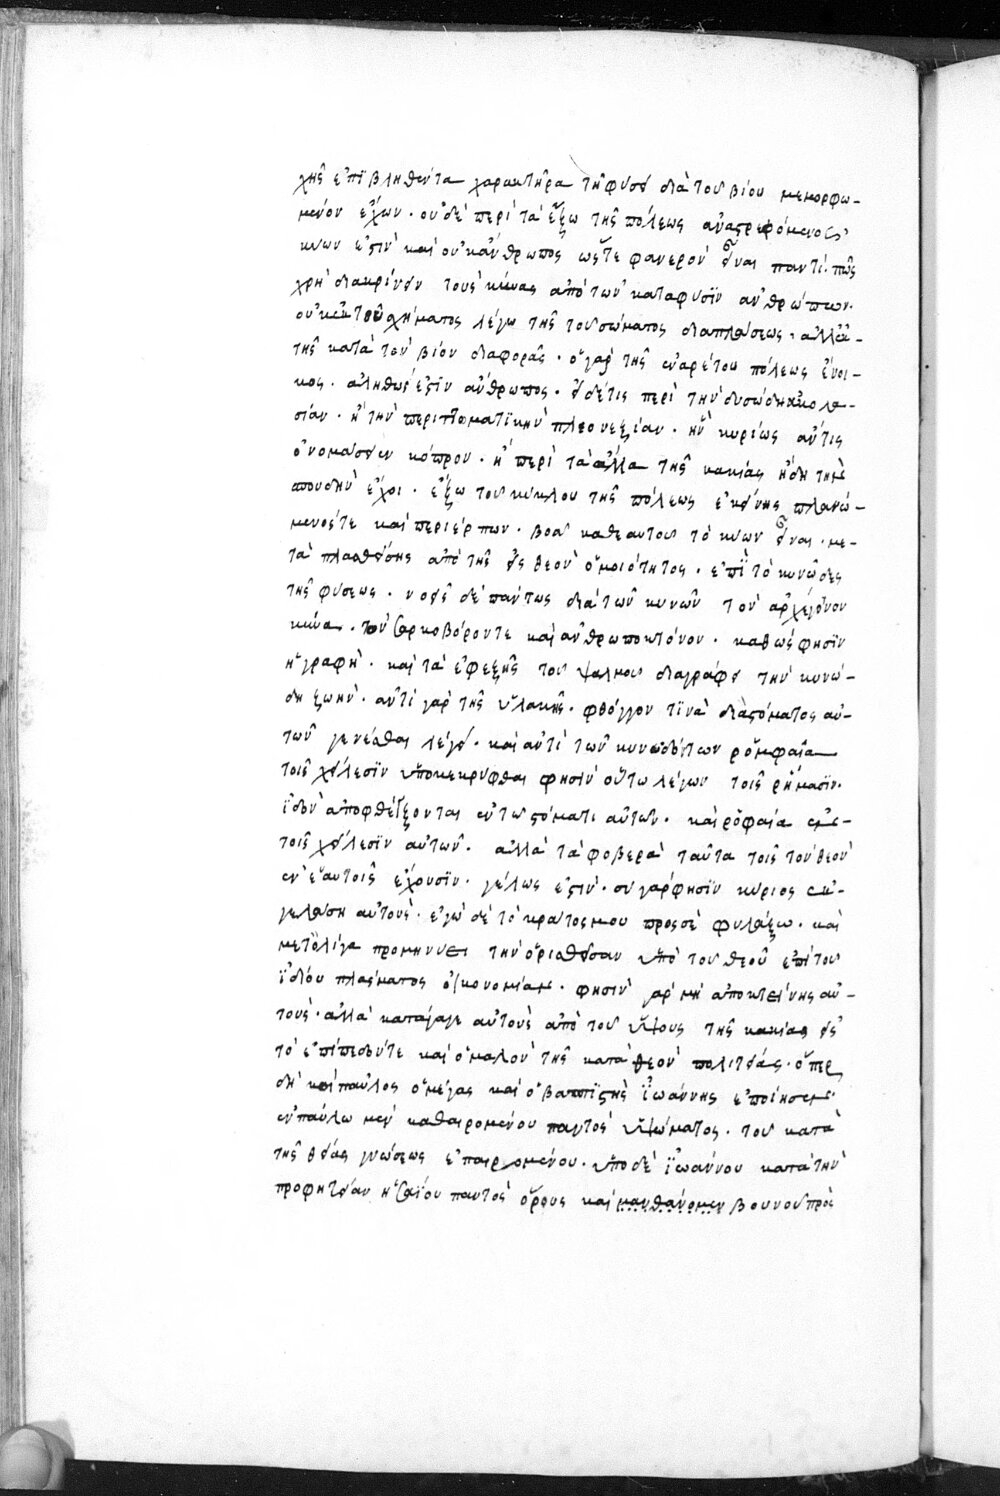 χῆς ἐπιβληθέντα χαρακτῆρα τῇ φύσει διὰ τοῦ βίου μεμορφω-
μένον ἔχων. οὐδὲ περὶ τὰ ἔξω τῆς πόλεως ἀναστρεφόμενος
κύων ἐστὶν καὶ οὐκ ἄνθρωπος ὥστε φανερὸν εἶναι παντὶ πῶς
χρὴ διακρίνειν τοὺς κύνας ἀπὸ τῶν κατὰ φύσιν ἀνθρώπων.
οὐκ ἐκ τοῦ σχήματος λέγω τῆς τοῦ σώματος διαπλάσεως, ἀλλ' ἐκ
τῆς κατὰ τὸν βίον διαφορᾶς. ὁ γὰρ τῆς ἐναρέτου πόλεως ἔνοι-
κος. ἀληθῶς ἐστὶν ἄνθρωπος. εἰ δέ τις περὶ τὴν δυσώδη ἀκολα-
σίαν. ἢ τὴν περιττωματικὴν πλεονεξίαν. ἣν κυρίως ἄν τις
ὀνομάσειεν κόπρον. ἢ περὶ τὰ ἄλλα τῆς κακίας ἤδη τὴν
σπουδὴν ἔχοι. ἔξω τοῦ κύκλου τῆς πόλεως ἐκείνης πλανώ-
μενός τε καὶ περιέρπων. βοᾷ καθ' ἑαυτοῦ τὸ κύων εἶναι. με-
ταπλασθείσης ἀπὸ τῆς εἰς θεὸν ὁμοιότητος. ἐπὶ τὸ κυνῶδες
τῆς φύσεως. νοεῖς δὲ πάντως διὰ τῶν κυνῶν τὸν ἀρχέγονον
κύνα. τὸν σαρκοβόρον τε καὶ ἀνθρωποκτόνον. καθώς φησιν
ἡ γραφή. καὶ τὰ ἐφεξῆς τοῦ ψαλμοῦ διαγράφει τὴν κυνώ-
δη ζωήν. ἀντὶ γὰρ τῆς ὑλακῆς. φθόγγον τινὰ διὰ στόματος αὐ-
τῶν γενέσθαι λέγει. καὶ ἀντὶ τῶν κυνωδόντων ῥομφαία
τοῖς χείλεσιν ὑποκεκρύφθαι φησὶν οὕτω λέγων τοῖς ῥήμασιν.
ἰδοὺ ἀποφθέγξονται ἐν τῷ στόματι αὐτῶν. καὶ ῥομφαία ἐν
τοῖς χείλεσιν αὐτῶν. ἀλλὰ τὰ φοβερὰ ταῦτα τοῖς τὸν θεὸν
ἐν ἑαυτοῖς ἔχουσιν. γέλως ἐστίν. σὺ γάρ φησιν κύριος ἐκ-
γελάσῃ αὐτούς. ἐγὼ δὲ τὸ κράτος μου πρὸς σὲ φυλάξω. καὶ
μετ' ὀλίγα προμηνύει τὴν ὁρισθεῖσαν ὑπὸ τοῦ θεοῦ ἐπὶ τοῦ
ἰδίου πλάσματος οἰκονομίαν. φησὶν γὰρ μὴ ἀποκτείνῃς αὐ-
τούς. ἀλλὰ κατάγαγε αὐτοὺς ἀπὸ τοῦ ὕψους τῆς κακίας εἰς
τὸ ἐπίπεδόν τε καὶ ὁμαλὸν τῆς κατὰ θεὸν πολιτείας. ὅπερ
δὴ καὶ παῦλος ὁ μέγας καὶ ὁ βαπτιστὴς ἰωάννης ἐποίησεν.
ἐν παύλῳ μὲν καθαιρομένου παντὸς ὑψώματος. τοῦ κατὰ
τῆς θείας γνώσεως ἐπαιρομένου. ὑπὸ δὲ ἰωάννου κατὰ τὴν
προφητείαν ἡσαΐου παντὸς ὄρους καὶ μανθάνομεν βουνοῦ πρὸς